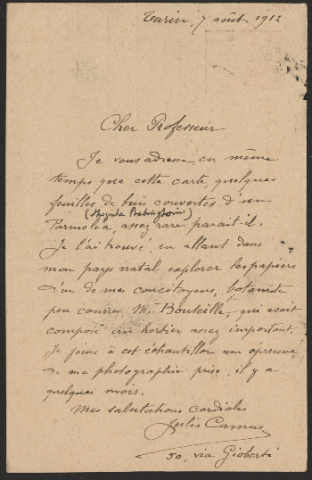 Turin, 7 août 1912
Cher Professeur
Je vous adresse, en même
temps que cette carte, quelques
feuilles de buis couvertes d'un
Parmelia, assez rare paraît-il.
Je l'ai trouvé, en allant dans
mon pays natal explorer les papiers
d'un de mes concitoyens, botaniste
peu connu, M. Bouteille, qui avait
composé un herbier assez important.
Je joins à cet échantillon une épreuve
de ma photographie prise, il y a
quelques mois.
Mes salutations cordiales
Jules Camus
50, via Gioberti